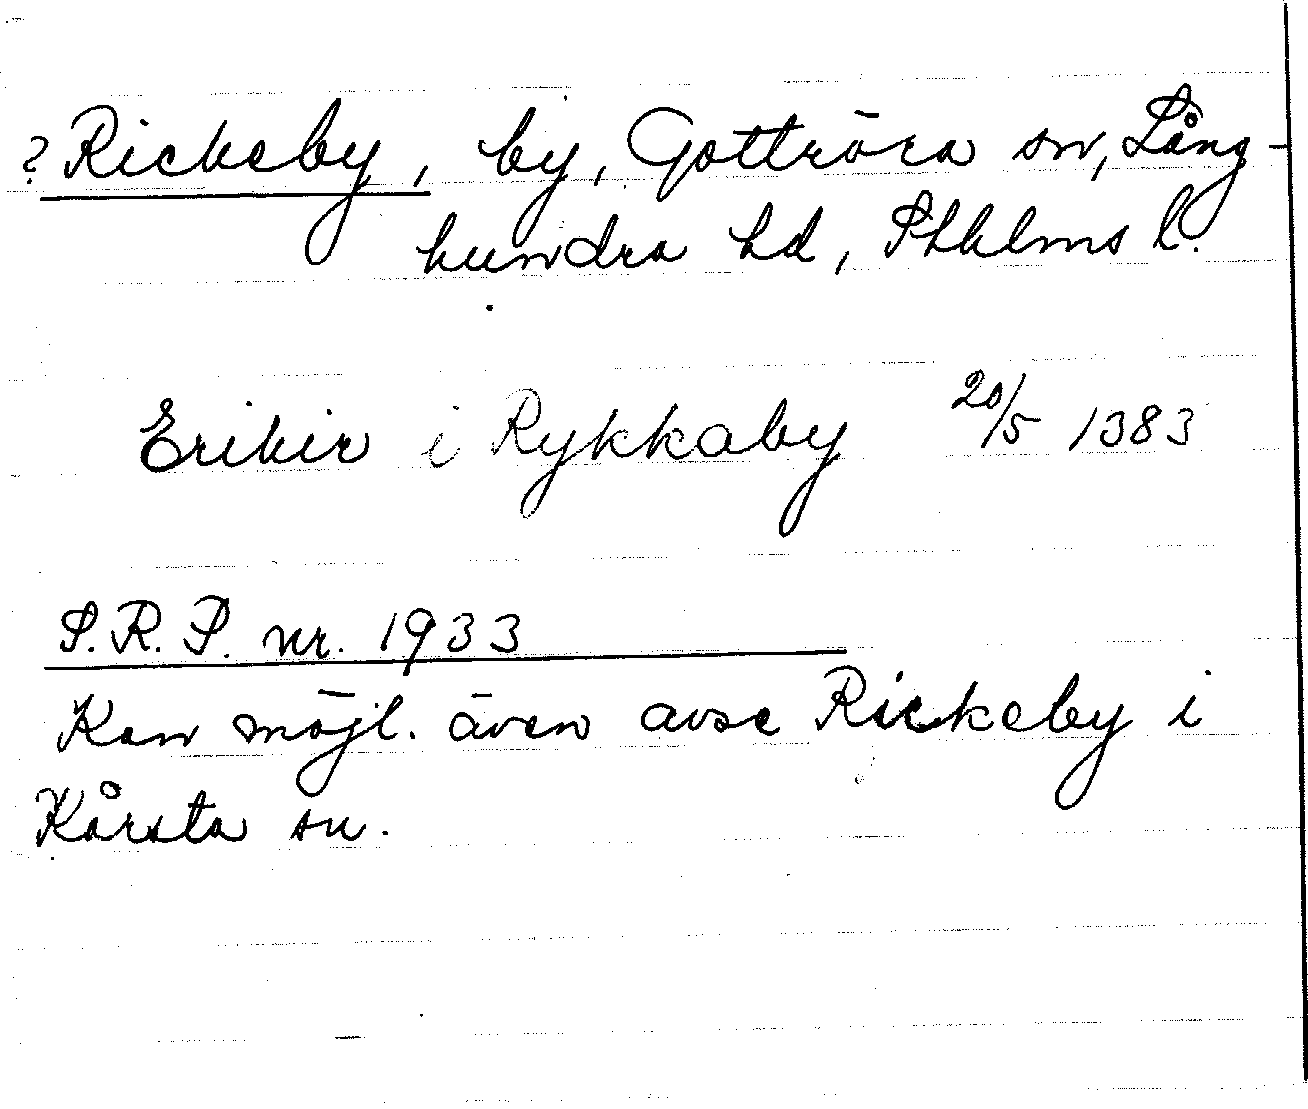 ? Rickeby, by, Gottröra sn, Lång-
hundra hd, Sthlms l.
Erikir i Rykkaby 20/5 1383
S.R.P. nr. 1933
Kan möjl. även avse Rickeby i
Kårsta sn.